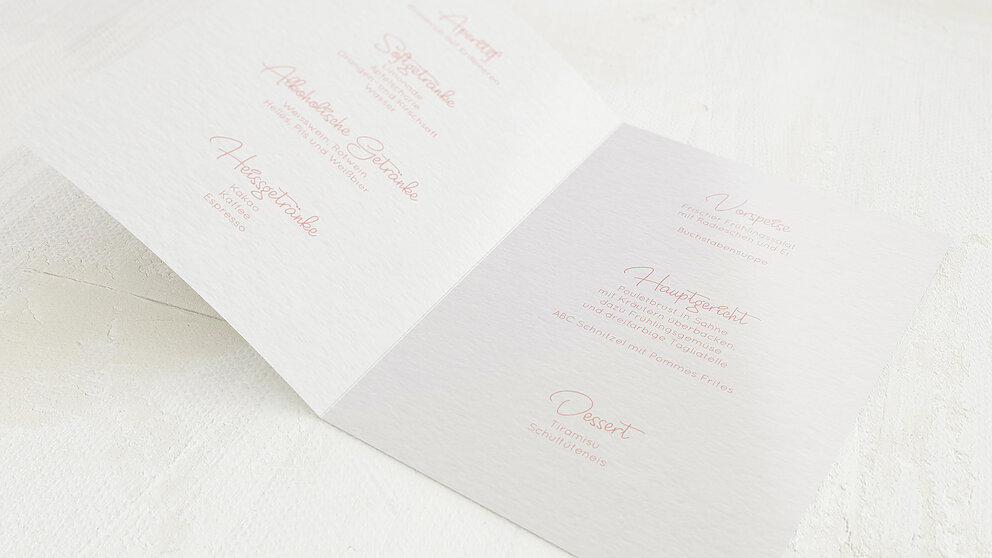 Aperitif
zum Erdbeeren
Softgetränke
Limonade
Apfelschorle
Orangen- und Kirschsaft
Wasser
Alkoholische Getränke
Weisswein, Rotwein
Helles, Pils und Weißbier
Heissgetränke
Kakao
Kaffee
Espresso
Vorspeise
Frischer Frühlingssalat
mit Radieschen und Ei
Buchstabensuppe
Hauptgericht
Pouletbrust in Sahne
mit Kräutern überbacken,
dazu Frühlingsgemüse
und dreifarbige Tagliatelle
ABC Schnitzel mit Pommes Frites
Dessert
Tiramisu
Schultüteneis